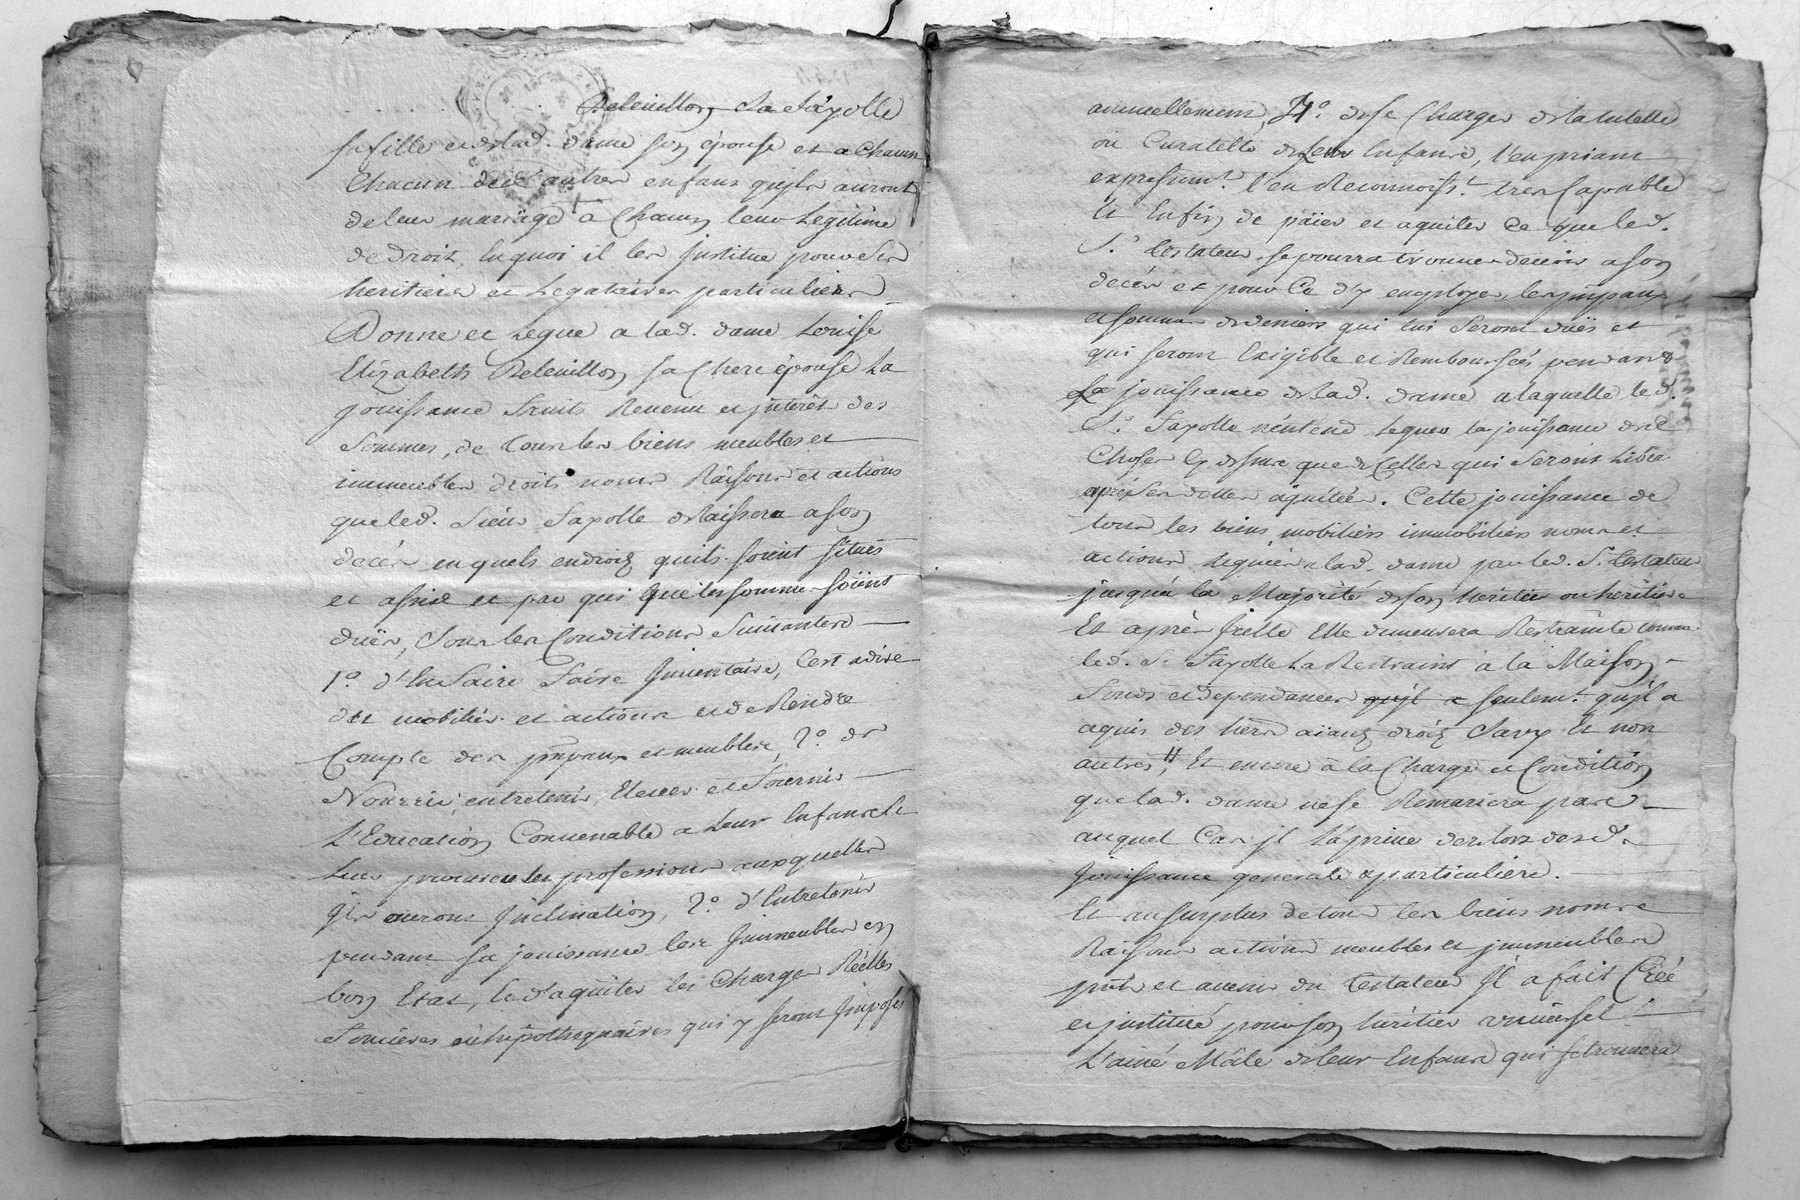 Releuillon La Sapolle
sa fille et de lad. dame son épouse et a chacun
chacun des autres enfans quils auront
de leur mariage a chacun leur Legitime
de droit, en quoi il les Institue pour ses
heritiers et Legataires particuliers
Donne et Legue a lad. dame Louise
Elizabeth Releuillon sa chere épouse La
jouissance fruits Revenu et jnterêt des
sommes, de tous les biens meubles et
immeubles droits noms Raisons et actions
que led. Sieur Sapolle delaissera a son
decés en quels endroiz quils soient situés
et assis et par qui que les sommes soiint
duës, sous les Conditions Suivantes
1.° d'En faire faire Jnventaire, C'est a dire
des mobiliers et actions et de Rendre
Compte des et meubles, 2.° de
Nourrir, entretenir, Elever et fournir
L'Education Convenable a Leur Enfans et
Leur procurer les professions auxquelles
Jls auront Jnclination, 3.° d'Entretenir
pendant sa jouissance les Jmmeubles en
bon Etat, et d'aquiter les Charges Réelles
foncieres ou hipothequaires qui y seront Jmposés
annuellement, 4.° de se Charger de la tutelle
ou Curatelle de Leur Enfans, l'en priant
expressemt. l'en Reconnoisst. tres Capable
Et Enfin de païer et aquiter Ce que led.
S.r testateur se pourra trouver devoir a son
decés et pour Ce d'y employer,
et sommes de deniers qui lui seront duës et
qui seront Exigible et Remboursées pendant
La jouissance de lad. dame a laquelle led.
S.r Sapolle n'entend Leguer la jouissance des
Choses Cy dessus que de Celles qui seront Libre
après ses dettes aquitées. Cette jouissance de
tous les biens mobiliers immobiliers noms et
actions Leguée a lad. dame par led. S.r testateur
jusqu'a la Majorité de son heritier ou heritiere
Et après Jcelle Elle demeurera Restrainte comme
led. S.r Sapolle La Restraint à la Maison
fonds et dependances qu'jl a seulemt. qu'jl a
aquis des hers aïanz droiz Savy Et non
autres, Et encore à la Charge et Condition
que lad. dame ne se Remariera pas
auquel Cas Jl la prive des lors de sad.
Jouissance generale et particuliere.
Et au surplus de tous les biens noms
Raisons actions meubles et jmmeubles
pnts et avenir du testateur Jl a fait Créé
et jnstitué pour son heritier universel
L'ainé Mâle de leur Enfans qui se trouvera